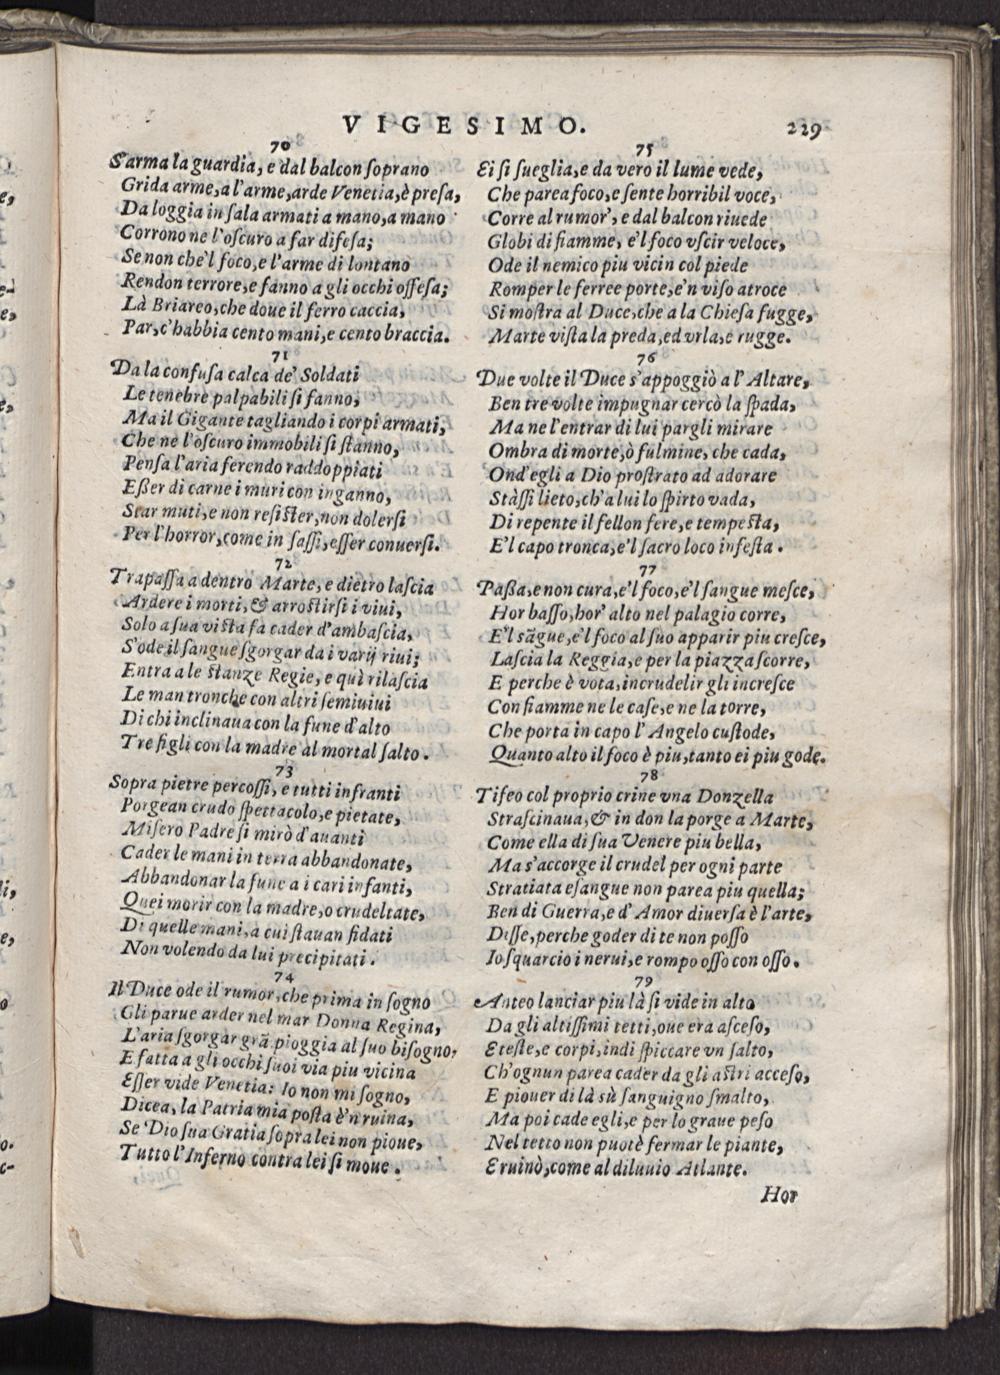 VIGESIMO.
229
70
S'arma la guardia, e dal balcon ſoprano
Grida arme, a l'arme, arde Venetia, è preſa,
Da loggia in ſala armati a mano, a mano
Corrono ne l'oſcuro a far difeſa;
Se non che'l foco, e l'arme di lontano
Rendon terrore, e fanno a gli occhi offeſa;
Là Briareo, che doue il ferro caccia,
Par, c'habbia cento mani, e cento braccia.
71
Da la confuſa calca de' Soldati
Le tenebre palpabili ſi fanno;
Ma il Gigante tagliando i corpi armati,
Che ne l'oſcuro immobili ſi ſtanno,
Penſa l'aria ferendo raddoppiati
Eßer di carne i muri con inganno,
Star muti, e non reſiſter, non dolerſi
Per l'horror, come in ſaſſi, eſſer conuerſi.
72
Trapaſſa a dentro Marte, e dietro laſcia
Ardere i morti, & arroſtirſi i viui,
Solo a ſua viſta fa cader d'ambaſcia,
S'ode il ſangue ſgorgar da i varij riui;
Entra a le ſtanze Regie, e quì rilaſcia
Le man tronche con altri ſemiuiui
Di chi inclinaua con la fune d'alto
Tre figli con la madre al mortal ſalto.
73
Sopra pietre percoſſi, e tutti infranti
Porgean crudo ſpettacolo, e pietate,
Miſero Padre ſi mirò d'auanti
Cader le mani in terra abbandonate,
Abbandonar la fune a i cari infanti,
Quei morir con la madre, o crudeltate,
Di quelle mani, a cui ſtauan fidati
Non volendo da lui precipitati.
74
Il Duce ode il rumor, che prima in ſogno
Gli parue arder nel mar Donna Regina,
L'aria ſgorgar grã pioggia al ſuo biſogno,
E fatta a gli occhi ſuoi via piu vicina
Eſſer vide Venetia: Io non mi ſogno,
Dicea, la Patria mia poſta è'n ruina,
Se Dio ſua Gratia ſopra lei non pioue,
Tutto l'Inferno contra lei ſi moue.
75
Ei ſi ſueglia, e da vero il lume vede,
Che parea foco, e ſente horribil voce,
Corre al rumor', e dal balcon riuede
Globi di fiamme, e'l foco vſcir veloce,
Ode il nemico piu vicin col piede
Romper le ferree porte, e'n viſo atroce
Si moſtra al Duce, che a la Chieſa fugge,
Marte viſta la preda, ed vrla, e rugge.
76
Due volte il Duce s'appoggiò a l'Altare,
Ben tre volte impugnar cercò la ſpada,
Ma ne l'entrar di lui pargli mirare
Ombra di morte, ò fulmine, che cada,
Ond'egli a Dio proſtrato ad adorare
Stàſſi lieto, ch'a lui lo ſpirto vada,
Di repente il fellon fere, e tempeſta,
E'l capo tronca, e'l ſacro loco infeſta.
77
Paßa, e non cura, e'l foco, e'l ſangue meſce,
Hor baſſo, hor' alto nel palagio corre,
E'l sãgue, e'l foco al ſuo apparir piu creſce,
Laſcia la Reggia, e per la piazza ſcorre,
E perche è vota, incrudelir gli increſce
Con fiamme ne le caſe, e ne la torre,
Che porta in capo l'Angelo cuſtode,
Quanto alto il foco è piu, tanto ei piu gode.
78
Tifeo col proprio crine vna Donzella
Straſcinaua, & in don la porge a Marte,
Come ella di ſua Venere piu bella,
Ma s'accorge il crudel per ogni parte
Stratiata eſangue non parea piu quella;
Ben di Guerra, e d'Amor diuerſa è l'arte,
Diſſe, perche goder di te non poſſo
Io ſquarcio i nerui, e rompo oſſo con oſſo.
79
Anteo lanciar piu là ſi vide in alto
Da gli altiſſimi tetti, oue era aſceſo,
E teſte, e corpi, indi ſpiccare vn ſalto,
Ch'ognun parea cader da gli aſtri acceſo,
E piouer di là sù ſanguigno ſmalto,
Ma poi cade egli, e per lo graue peſo
Nel tetto non puotè fermar le piante,
E ruinò, come al diluuio Atlante.
Hor